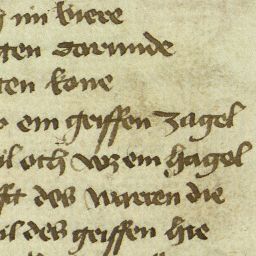 im viere
gten darunde
ten kone
ein greiffen zagel
il och wz ein hagel
fft des warten die
il des greiffen hie